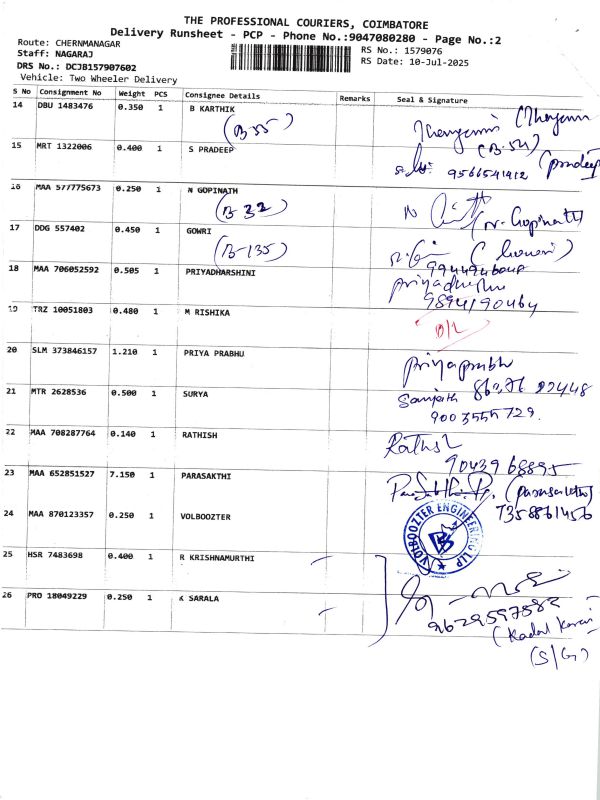 THE PROFESSIONAL COURIERS, COIMBATORE
Delivery Runsheet - PCP - Phone No.:9047080280 - Page No.:2
Route: CHERNMANAGAR
Staff: NAGARAJ
DRS No.: DCJB157907602
Vehicle: Two Wheeler Delivery
RS No.: 1579076
RS Date: 10-Jul-2025
S No Consignment No Weight PCS Consignee Details Remarks Seal & Signature
14 DBU 1483476 0.350 1 B KARTHIK
(B-55)
(B-54)
15 MRT 1322006 0.400 1 S PRADEEP
9566541412 (pradeep)
16 MAA 577775673 0.250 1 N GOPINATH
(B-32) N (N. Gopinath)
17 DDG 557402 0.450 1 GOWRI
(B-135) (Gowri)
18 MAA 706052592 0.505 1 PRIYADHARSHINI
9894190464
19 TRZ 10051803 0.480 1 M RISHIKA
D/L
20 SLM 373846157 1.210 1 PRIYA PRABHU
priyaprabhu
21 MTR 2628536 0.500 1 SURYA
Sanjath
9003555729.
22 MAA 708287764 0.140 1 RATHISH
9043968895
23 MAA 652851527 7.150 1 PARASAKTHI
7358861456
24 MAA 870123357 0.250 1 VOLBOOZTER
VOLBOOZTER ENGINEERING LLP
25 HSR 7483698 0.400 1 R KRISHNAMURTHI
26 PRO 18049229 0.250 1 K SARALA
9629597882
(S/G)